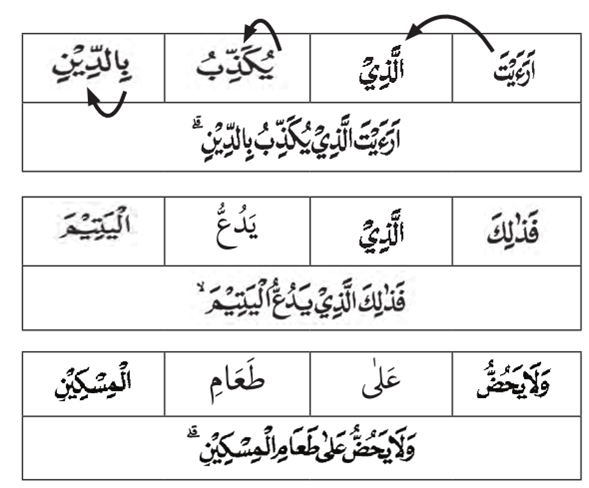 اَرَءَيْتَ الَّذِيْ يُكَذِّبُ بِالدِّيْنِ
اَرَءَيْتَ الَّذِيْ يُكَذِّبُ بِالدِّيْنِۗ
فَذٰلِكَ الَّذِيْ يَدُعُّ الْيَتِيْمَ
فَذٰلِكَ الَّذِيْ يَدُعُّ الْيَتِيْمَۙ
وَلَا يَحُضُّ عَلٰى طَعَامِ الْمِسْكِيْنِ
وَلَا يَحُضُّ عَلٰى طَعَامِ الْمِسْكِيْنِۗ